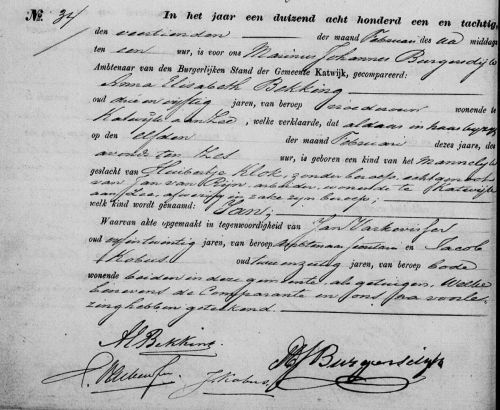 No. 32/ In het jaar een duizend acht honderd een en tachtig,
den veertienden der maand Februari des na middags
ten een uur, is voor ons Marinus Johannes Burgersdijk
Ambtenaar van den Burgerlijken Stand der Gemeente Katwijk, gecompareerd:
Anna Elisabeth Bekking
oud drie en vijftig jaren, van beroep vroedvrouw wonende te
Katwijk aan Zee, welke verklaarde, dat aldaar in haar bijzijn
op den elfden der maand Februari dezes jaars, des
avonds ten zes uur, is geboren een kind van het Mannelijk
geslacht van Huibertje Klok, zonder beroep, echtgenoote
van Jan van Rijn, arbeider, wonende te Katwijk
aan Zee, afwezig ter zake zijn beroep;
welk kind wordt genaamd: Jan;
Waarvan akte opgemaakt in tegenwoordigheid van Jan Varkevisser
oud en twintig jaren, van beroep en Jacob
Kobus oud jaren, van beroep bode
wonende beiden in deze gemeente, als getuigen. Welke
benevens de Comparante en ons na voorle-
zing hebben geteekend.
AE Bekking
J Kobus MJ Burgersdijk